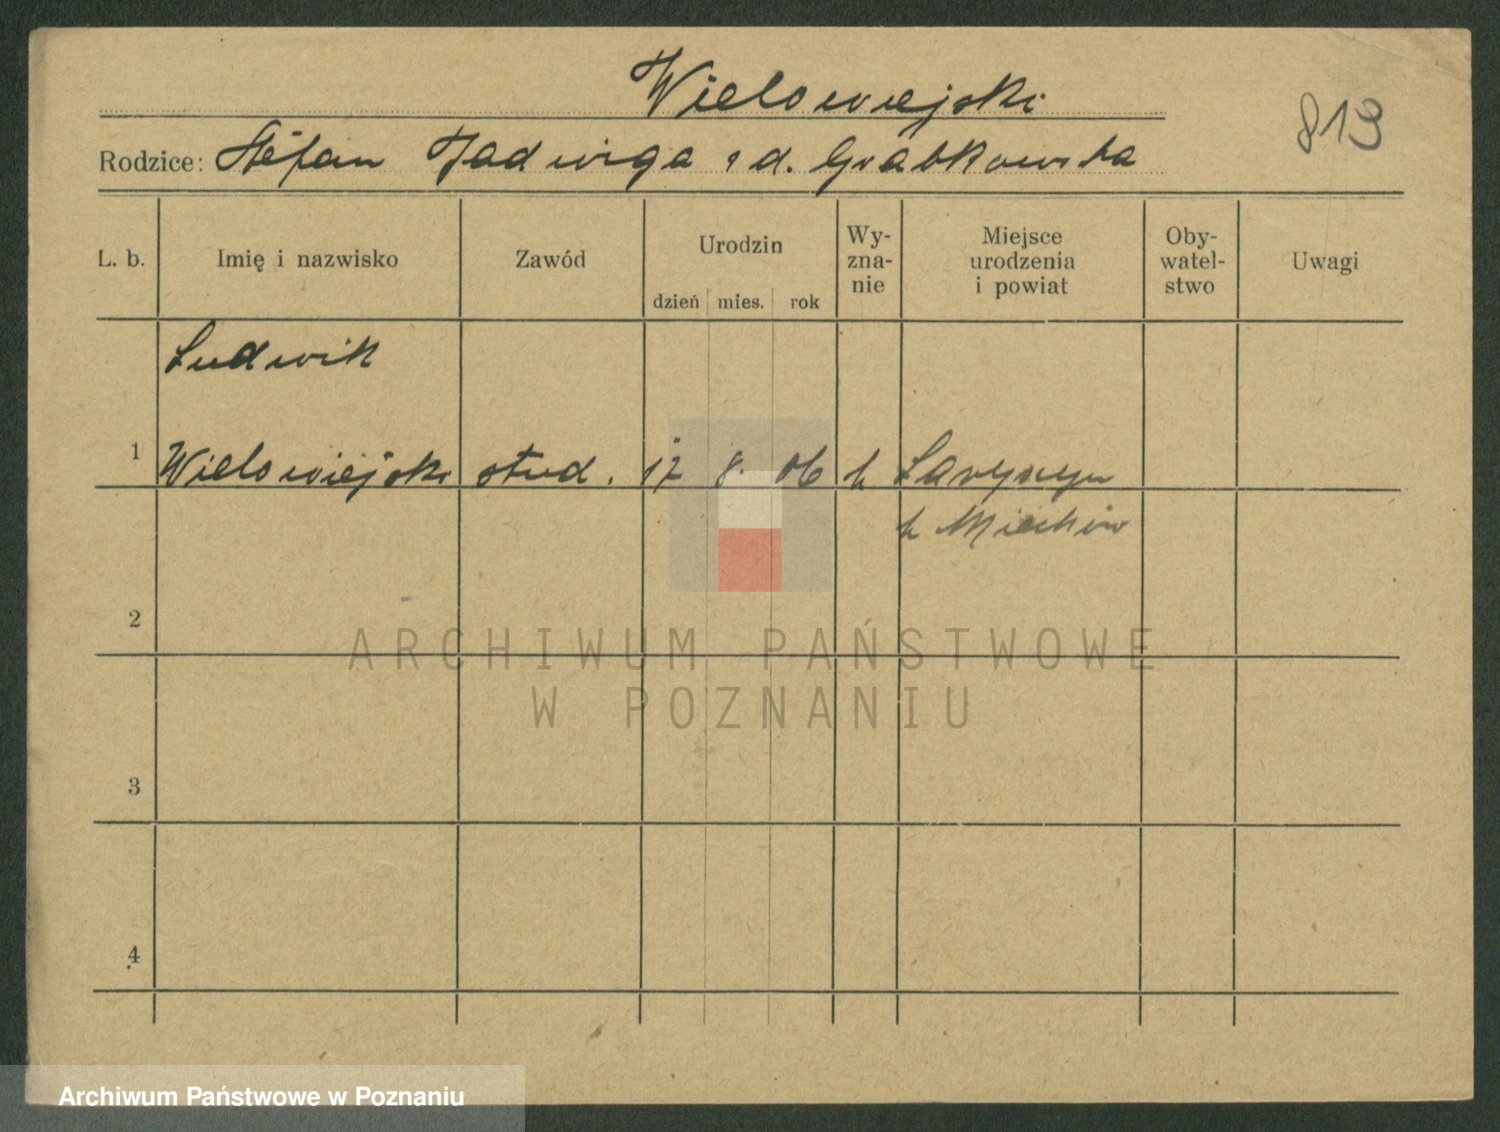 Wielowiejski
819
Rodzice: Stefan Jadwiga z d. Grabkowska
L. b. Imię i nazwisko Zawód Urodzin dzień mies. rok Wy-zna-nie Miejsce urodzenia i powiat Oby-watel-stwo Uwagi
Ludwik
1 Wielowiejski stud. 17 8. 06 k
k Miechów
2
ARCHIWUM PAŃSTWOWE
W POZNANIU
3
4
Archiwum Państwowe w Poznaniu